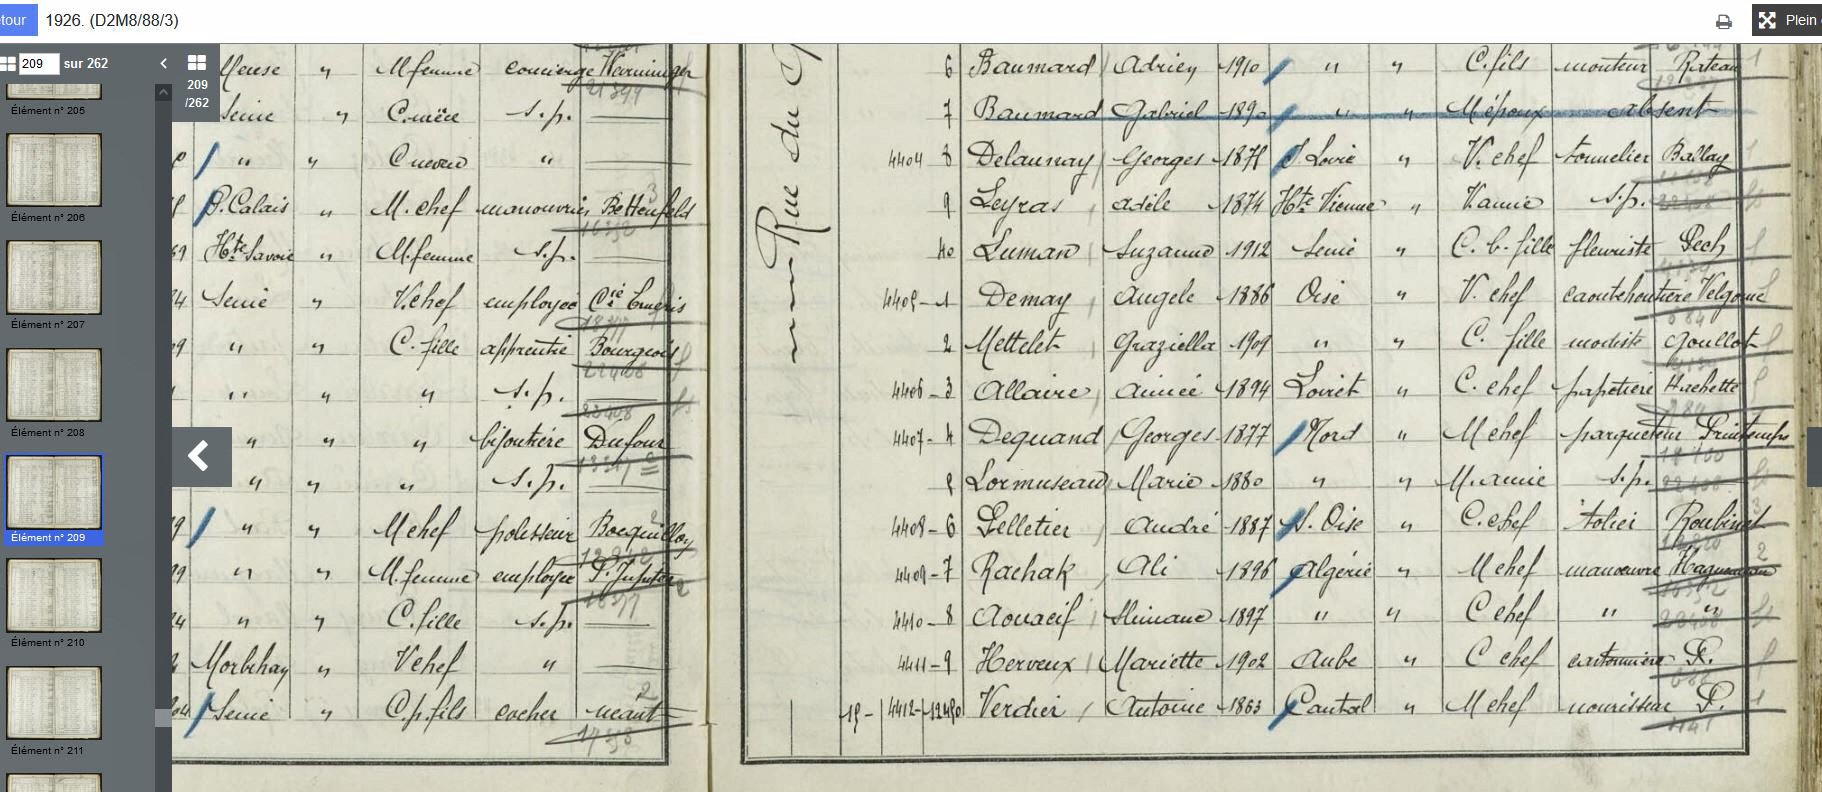 etour 1926. (D2M8/88/3) Plein
209 sur 262
209
/262
Élément n° 205
Élément n° 206
Élément n° 207
Élément n° 208
Élément n° 209
Élément n° 210
Élément n° 211
Meuse " M femme concierge
Seine " C. mère s.p.
" " C neveu "
P. Calais " M. chef manouvrier Bettenfeld
69 Hte Savoie " M. femme s.p.
24 Seine " V. chef employée Cie
09 " " C. fille apprentie Bourgeois
" " " s.p.
" " " bijoutière Dufour
" " " s.p.
" " M chef polisseur Bocquilloy
" " M. femme employée
24 " " C. fille s.p.
Morbihan " V chef "
04 Seine " C. p. fils cocher néant
Rue du
6 Baumard Adrien 1910 " " C. fils monteur Rateau
7 Baumard Gabriel 1890 " " M époux absent
4404 8 Delaunay Georges 1875 " V. chef tonnelier Ballay
9 Leyras Adèle 1874 Hte Vienne " V. amie s.p.
40 Luman Suzanne 1912 Seine " C. b. fille fleuriste Pech
4405 - 1 Demay Angèle 1886 Oise " V. chef caoutchoutière
2 Mettelet Graziella 1909 " " C. fille modiste Goullot
4406 - 3 Allaire Aimée 1894 Loiret " C. chef papetière Hachette
4407 - 4 Dequand Georges 1877 Nord " M chef parqueteur Printemps
5 Lormuseau Marie 1880 " " M. amie s.p.
4408 - 6 Pelletier André 1887 S. Oise " C. chef tolier Roubinet
4409 - 7 Rachak Ali 1896 Algérie " M chef manœuvre
4410 - 8 Aouacif Slimane 1897 " " C chef " "
4411 - 9 Herveux Mariette 1902 Aube " C chef cartonnière P.
15 - 4412 - 12450 Verdier Antoine 1863 Cantal " M chef nourisseur P.